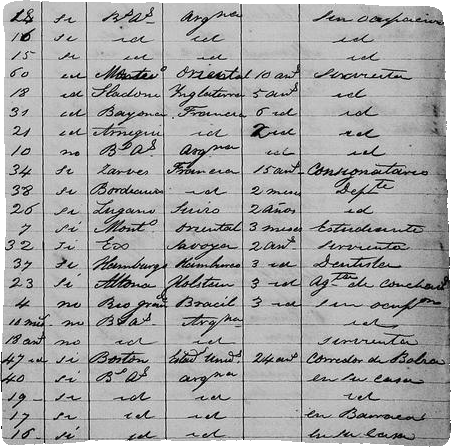 18 si Bs As Argna sin ocupacion
16 si id id id
15 si id id id
60 id Montevo Oriental 10 añs sirvienta
18 id Inglaterra 5 añs id
31 id Bayona Francia 6 id id
21 id id 2 id id
10 no Bs As Argna id id
34 si Francia 15 añs Consignatario
38 si Bordeaux id 2 meses Depte
26 si Lugano Suizo 2 años id
7 si Monto Oriental 3 meses Estudiante
32 si Savoya 2 añs sirviente
37 si Hamburgo Hamburgo 3 id Dentista
23 si Altona Holstein 3 id Agte de
4 no Rio grande Bracil 3 id sin ocupon
10 ms no Bs As Argna id
18 añs no id id sirvienta
47 id si Boston Estads Unids 24 añs Corredor de Bolsa
40 si Bs As argna en su casa
19 si id id id
17 si id id en Barraca
16 si id id en su casa